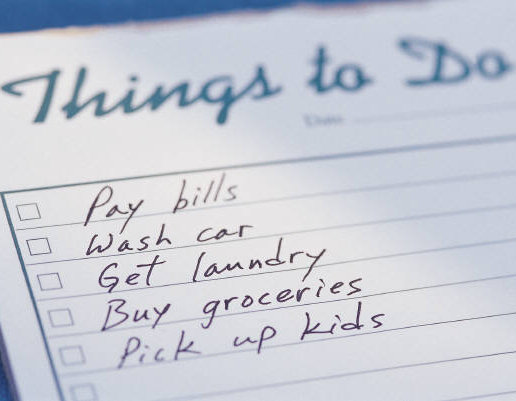 Things to Do
Date
Pay bills
Wash car
Get laundry
Buy groceries
Pick up kids